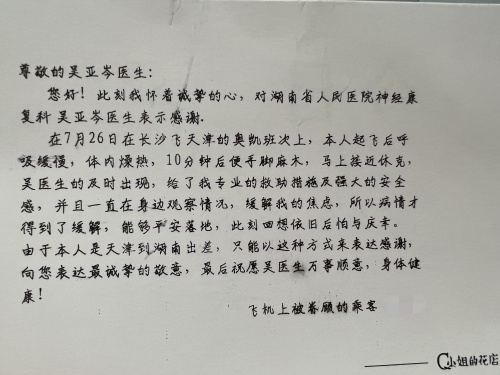 尊敬的吴亚岑医生:
您好! 此刻我怀着诚挚的心, 对湖南省人民医院神经康
复科 吴亚岑医生表示感谢.
在7月26日在长沙飞天津的奥凯班次上, 本人起飞后呼
吸缓慢, 体内燥热, 10分钟后便手脚麻木, 马上接近休克,
吴医生的及时出现, 给了我专业的救助措施及强大的安全
感, 并且一直在身边观察情况, 缓解我的焦虑, 所以病情才
得到了缓解, 能够平安落地, 此刻回想依旧后怕与庆幸.
由于本人是天津到湖南出差, 只能以这种方式来表达感谢,
向您表达最诚挚的敬意, 最后祝愿吴医生万事顺意, 身体健
康!
飞机上被眷顾的乘客
小姐的花店